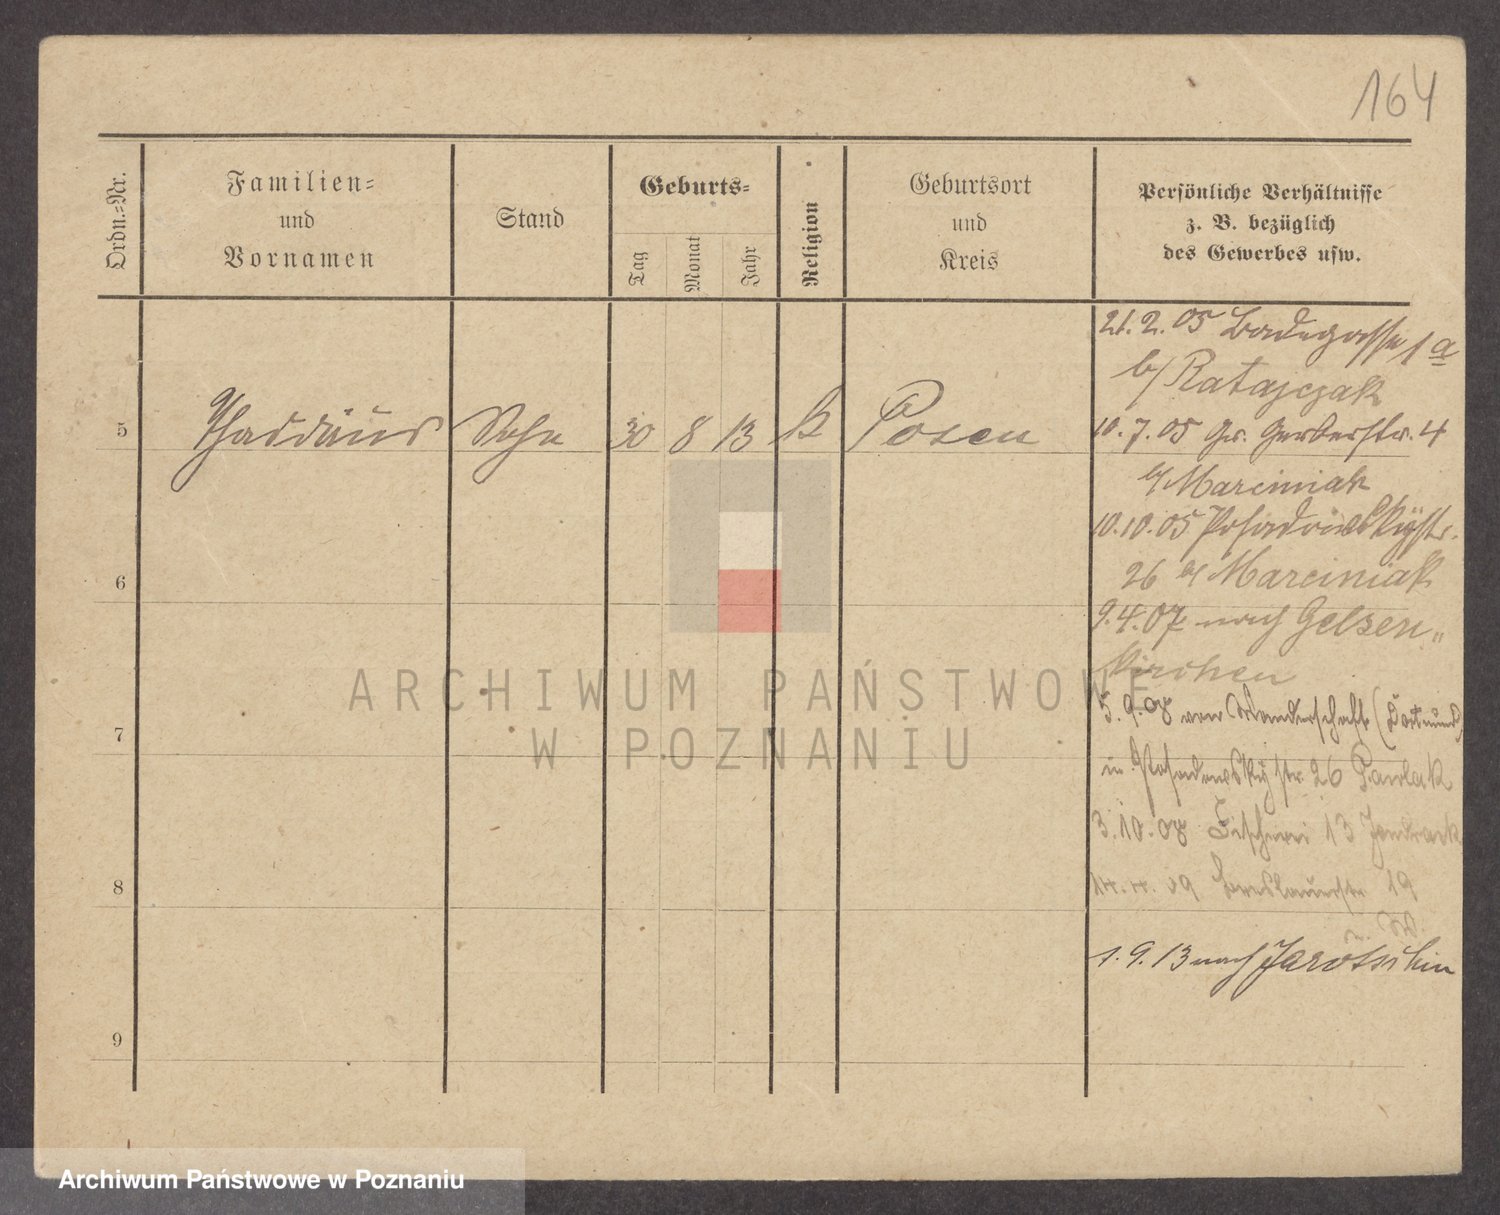 164
Ordn.=Nr.
Familien=
und
Vornamen
Stand
Geburts=
Tag
Monat
Jahr
Religion
Geburtsort
und
Kreis
Persönliche Verhältnisse
z. B. bezüglich
des Gewerbes usw.
21.2.05 Badegasse 1a
b/ Ratajczak
5 Thaddäus Sohn 30 8 13 k Posen
10.7.05 Gr. Gerberstr. 4
b/ Marciniak
10.10.05 Posadowskystr.
6
26 b/ Marciniak
9.4.07 nach Gelsen„
kirchen
5.9.08 von Wanderschaft (Dortmund)
7
in Posadowskystr. 26 Pawlak
3.10.08 Fischerei 13
8
14.4.09 Breslauerstr 19
1.9.13 nach Jarotschin
9
ARCHIWUM PAŃSTWOWE
W POZNANIU
Archiwum Państwowe w Poznaniu